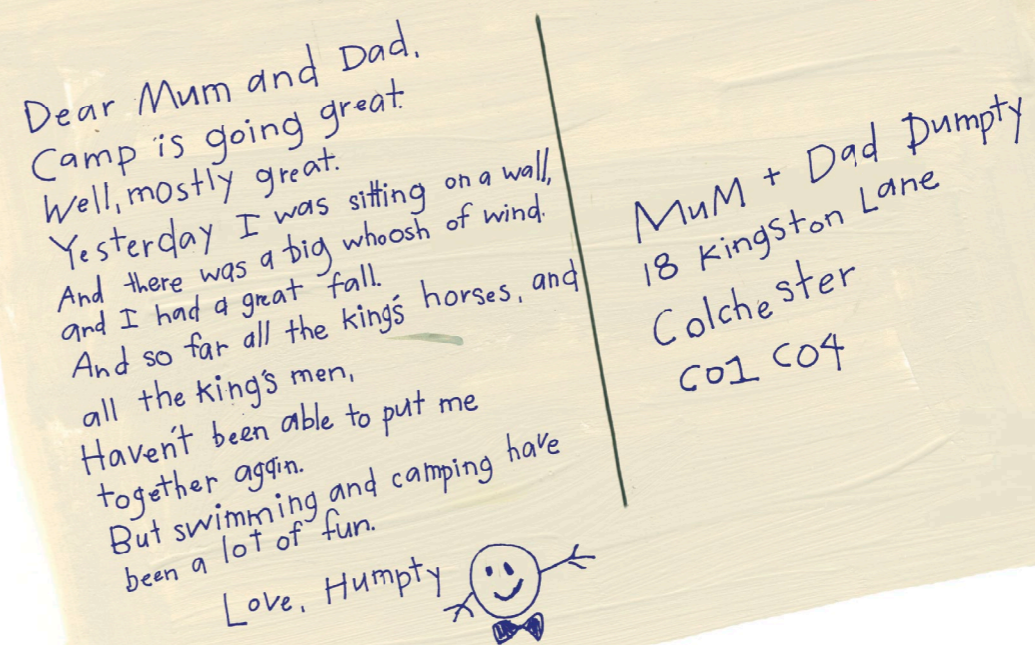 Dear Mum and Dad,
Camp is going great.
Well, mostly great.
Yesterday I was sitting on a wall,
And there was a big whoosh of wind.
and I had a great fall.
And so far all the king's horses, and
all the king's men,
Haven't been able to put me
together again.
But swimming and camping have
been a lot of fun.
Love, Humpty
MuM + Dad Dumpty
18 Kingston Lane
Colchester
CO1 CO4